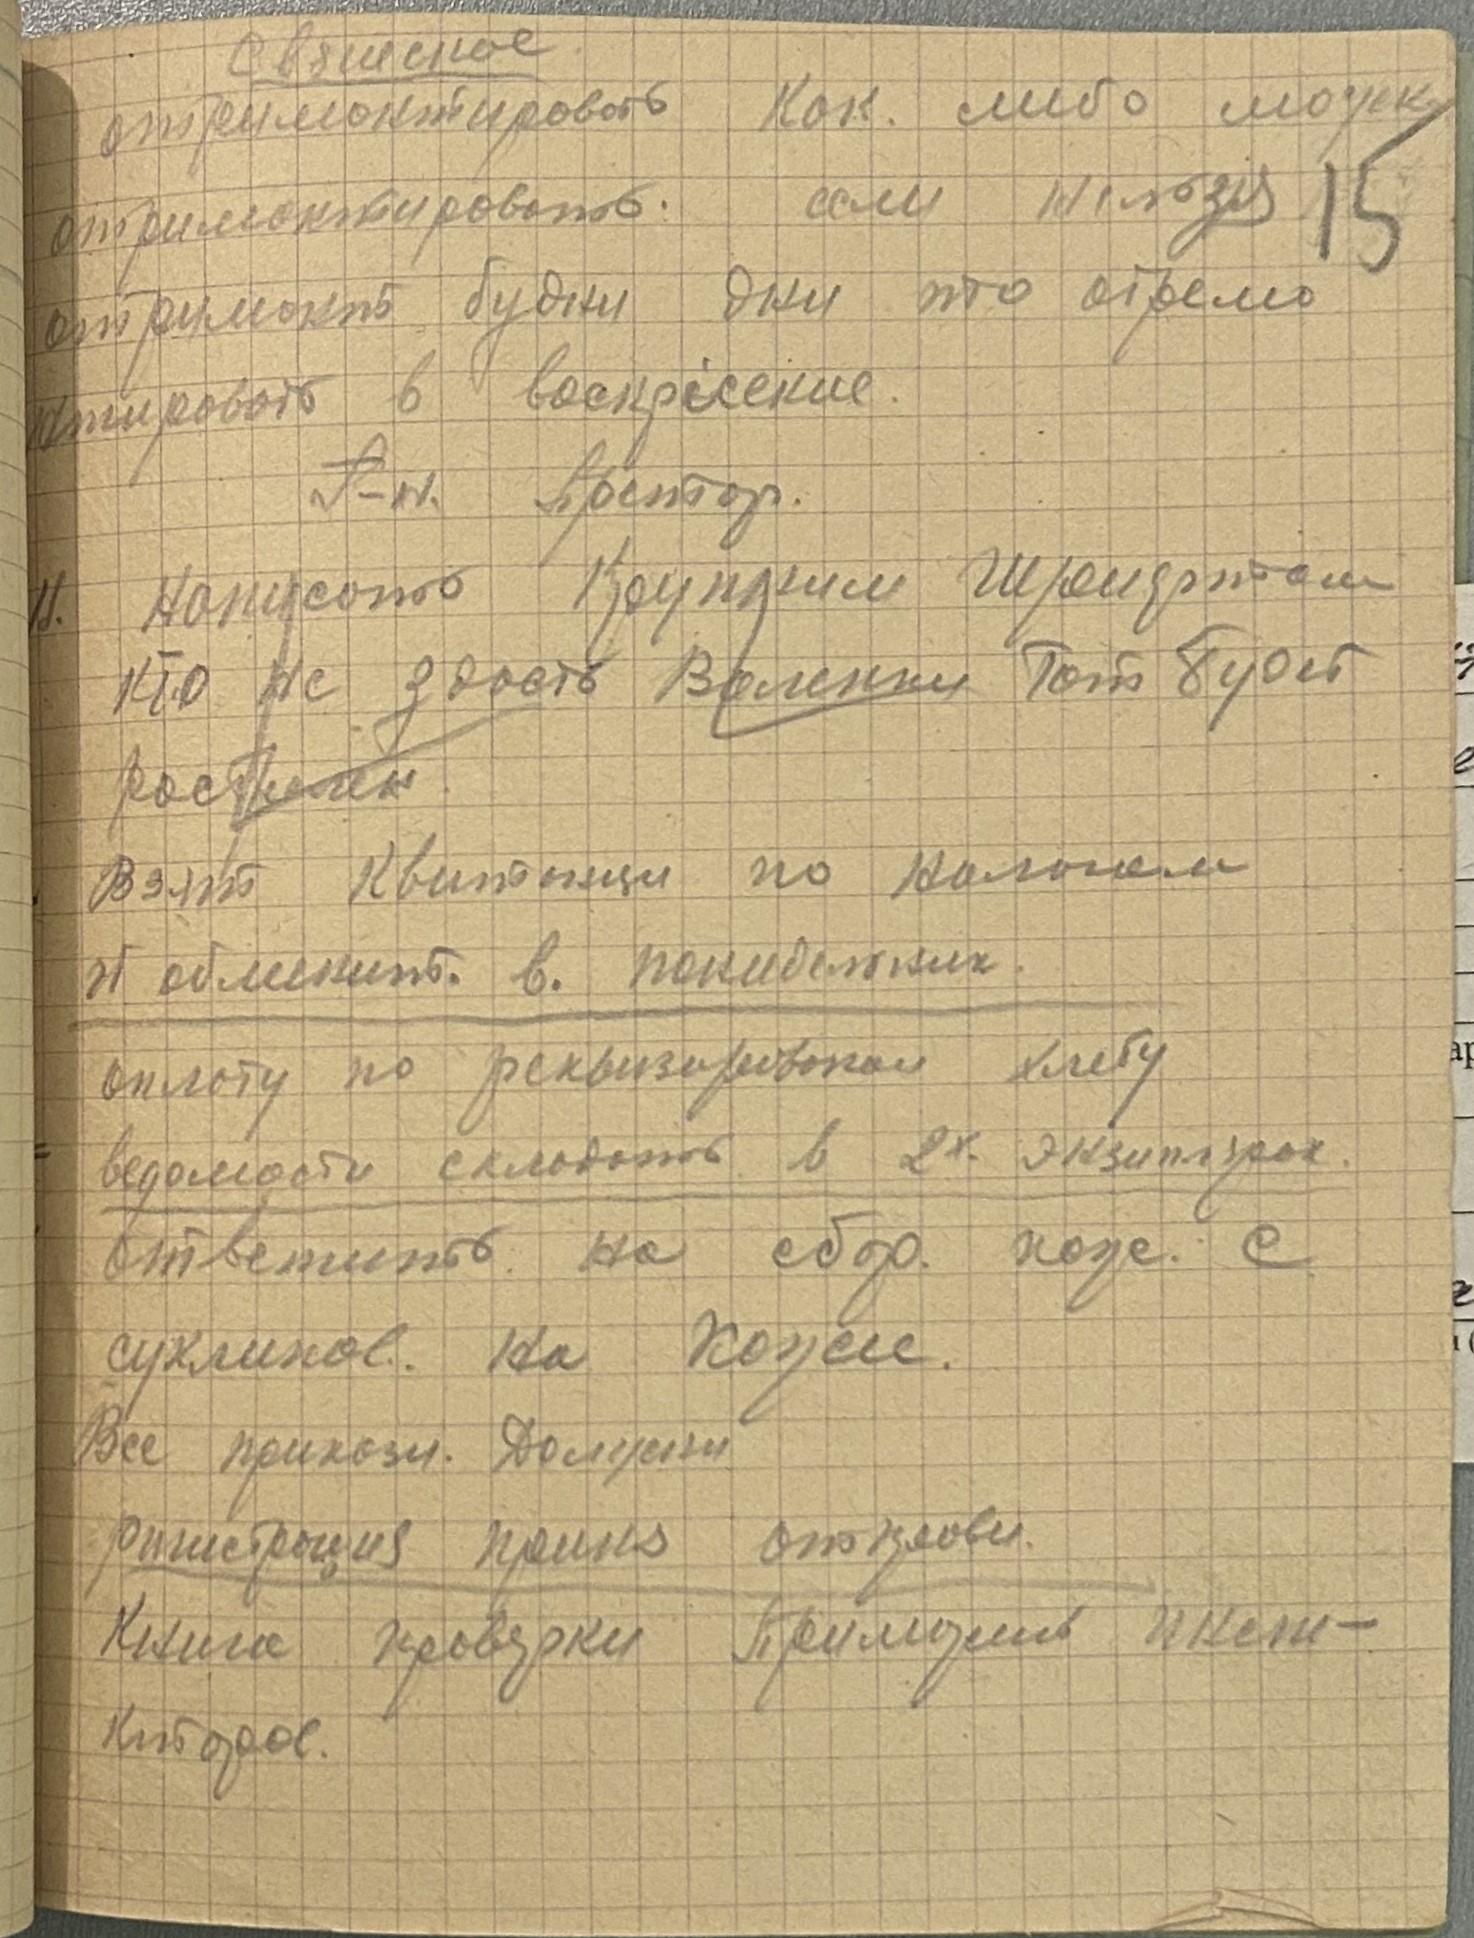 Свяжское
отримонтировать Как. либо можн
отримонтировать. если нельзя 15
отримонт будни дни то отремо
нтировать в воскрісение.
Г-н. Простор.
Н. Написать Крупним Шрифтом
кто не здасть Валенки Тот будет
растрелен
Взят Квитанци по налогам
и обменит. в. понидельник.
оплоту по реквизированом хлебу
ведомости складать в 2х. экзимпярах.
ответить на сбор. кож. С
сукмилов. на Коже.
Все прикази. Должни
ригистрация приказ
Книга проверки инст-